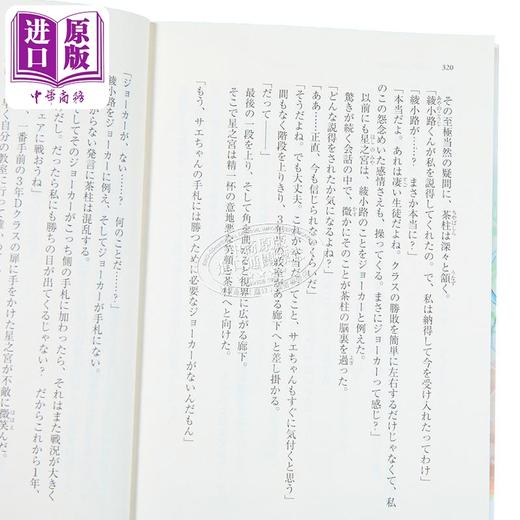 进口
原版
中華商務
320
その至極当然の疑問に、茶柱は深々と頷く。
「綾小路くんが私を説得してくれたの。で、私は納得して今を受け入れたってわけ」
「綾小路が……？　まさか本当に？」
「本当だよ。あれは凄い生徒だよね。クラスの勝敗を簡単に左右するだけじゃなくて、私
のこの怨念めいた感情さえも、操ってくる。まさにジョーカーって感じ？」
以前にも星之宮は、綾小路のことをジョーカーと例えた。
驚きが続く会話の中で、微かにそのことが茶柱の脳裏を過った。
「どんな説得をされたか気になるよね？」
「ああ……正直、今も信じられないくらいだ」
「そうだよね。でも大丈夫、サエちゃんもすぐに気付くと思う」
間もなく階段を上りきり、3年生の教室がある廊下へと差し掛かる。
「だって───」
最後の一段を上り、そして角を曲がると視界に広がる廊下。
そこで星之宮は精一杯の意地悪な笑顔を茶柱へと向けた。
「もう、サエちゃんの手札には勝つために必要なジョーカーがないんだもん」
「ジョーカーが、ない……？　何のことだ……？」
綾小路をジョーカーに例え、そしてジョーカーが手札にない。
からない発言に茶柱は混乱する。
してそのジョーカーがこっち側の手札に加わったら、それはまた戦況が大きく
だし。だったら私にも勝ちの目が出てくるじゃない？　だからこれから1年、
ェアに戦おうね」
一番手前の3年Dクラスの扉に手をかけた星之宮が不敵に微笑んだ。